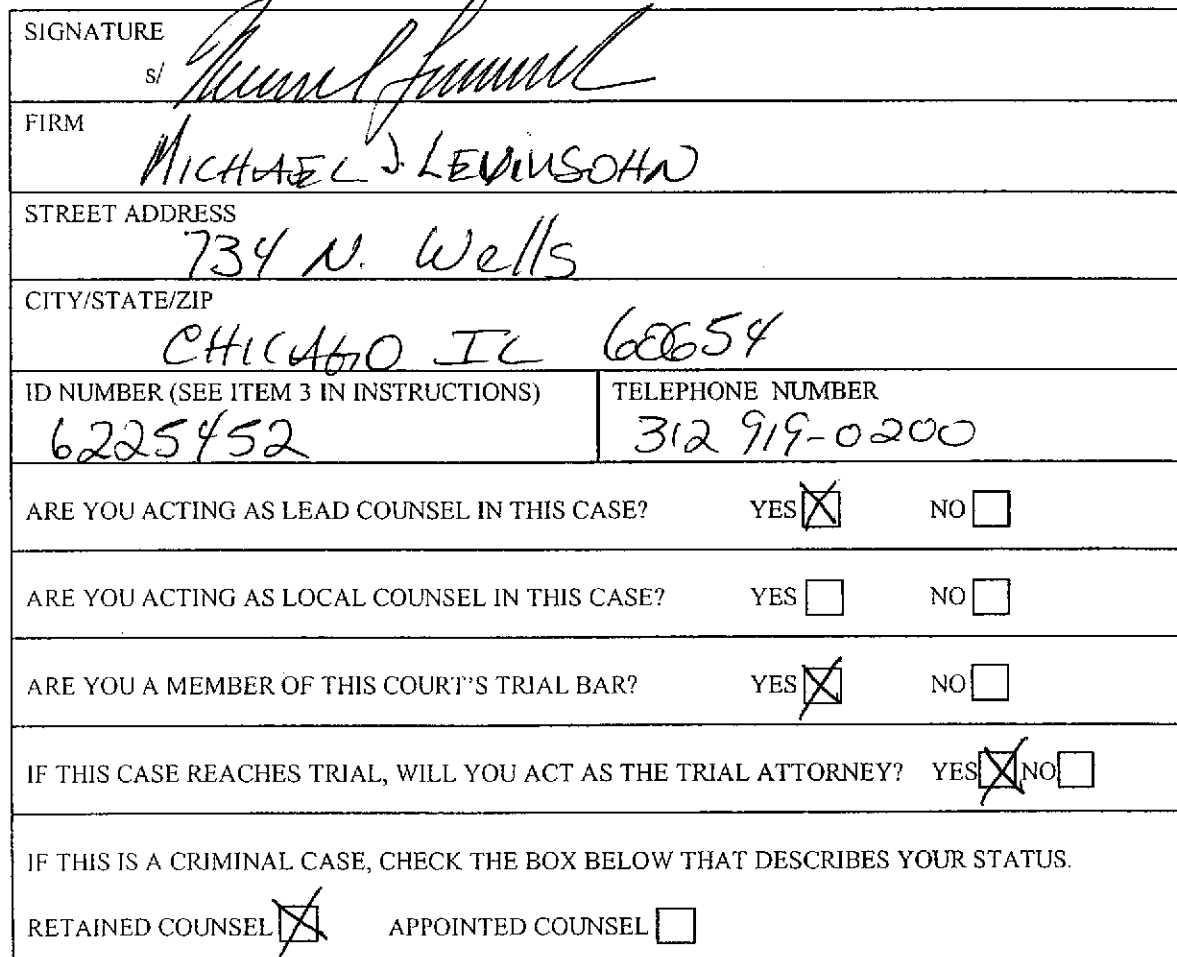 SIGNATURE
s/
FIRM
MICHAEL J. LEVINSOHN
STREET ADDRESS
734 N. Wells
CITY/STATE/ZIP
CHICAGO IL 60654
ID NUMBER (SEE ITEM 3 IN INSTRUCTIONS) TELEPHONE NUMBER
6225452 312 919-0200
ARE YOU ACTING AS LEAD COUNSEL IN THIS CASE? YES NO
ARE YOU ACTING AS LOCAL COUNSEL IN THIS CASE? YES NO
ARE YOU A MEMBER OF THIS COURT'S TRIAL BAR? YES NO
IF THIS CASE REACHES TRIAL, WILL YOU ACT AS THE TRIAL ATTORNEY? YES NO
IF THIS IS A CRIMINAL CASE, CHECK THE BOX BELOW THAT DESCRIBES YOUR STATUS.
RETAINED COUNSEL APPOINTED COUNSEL